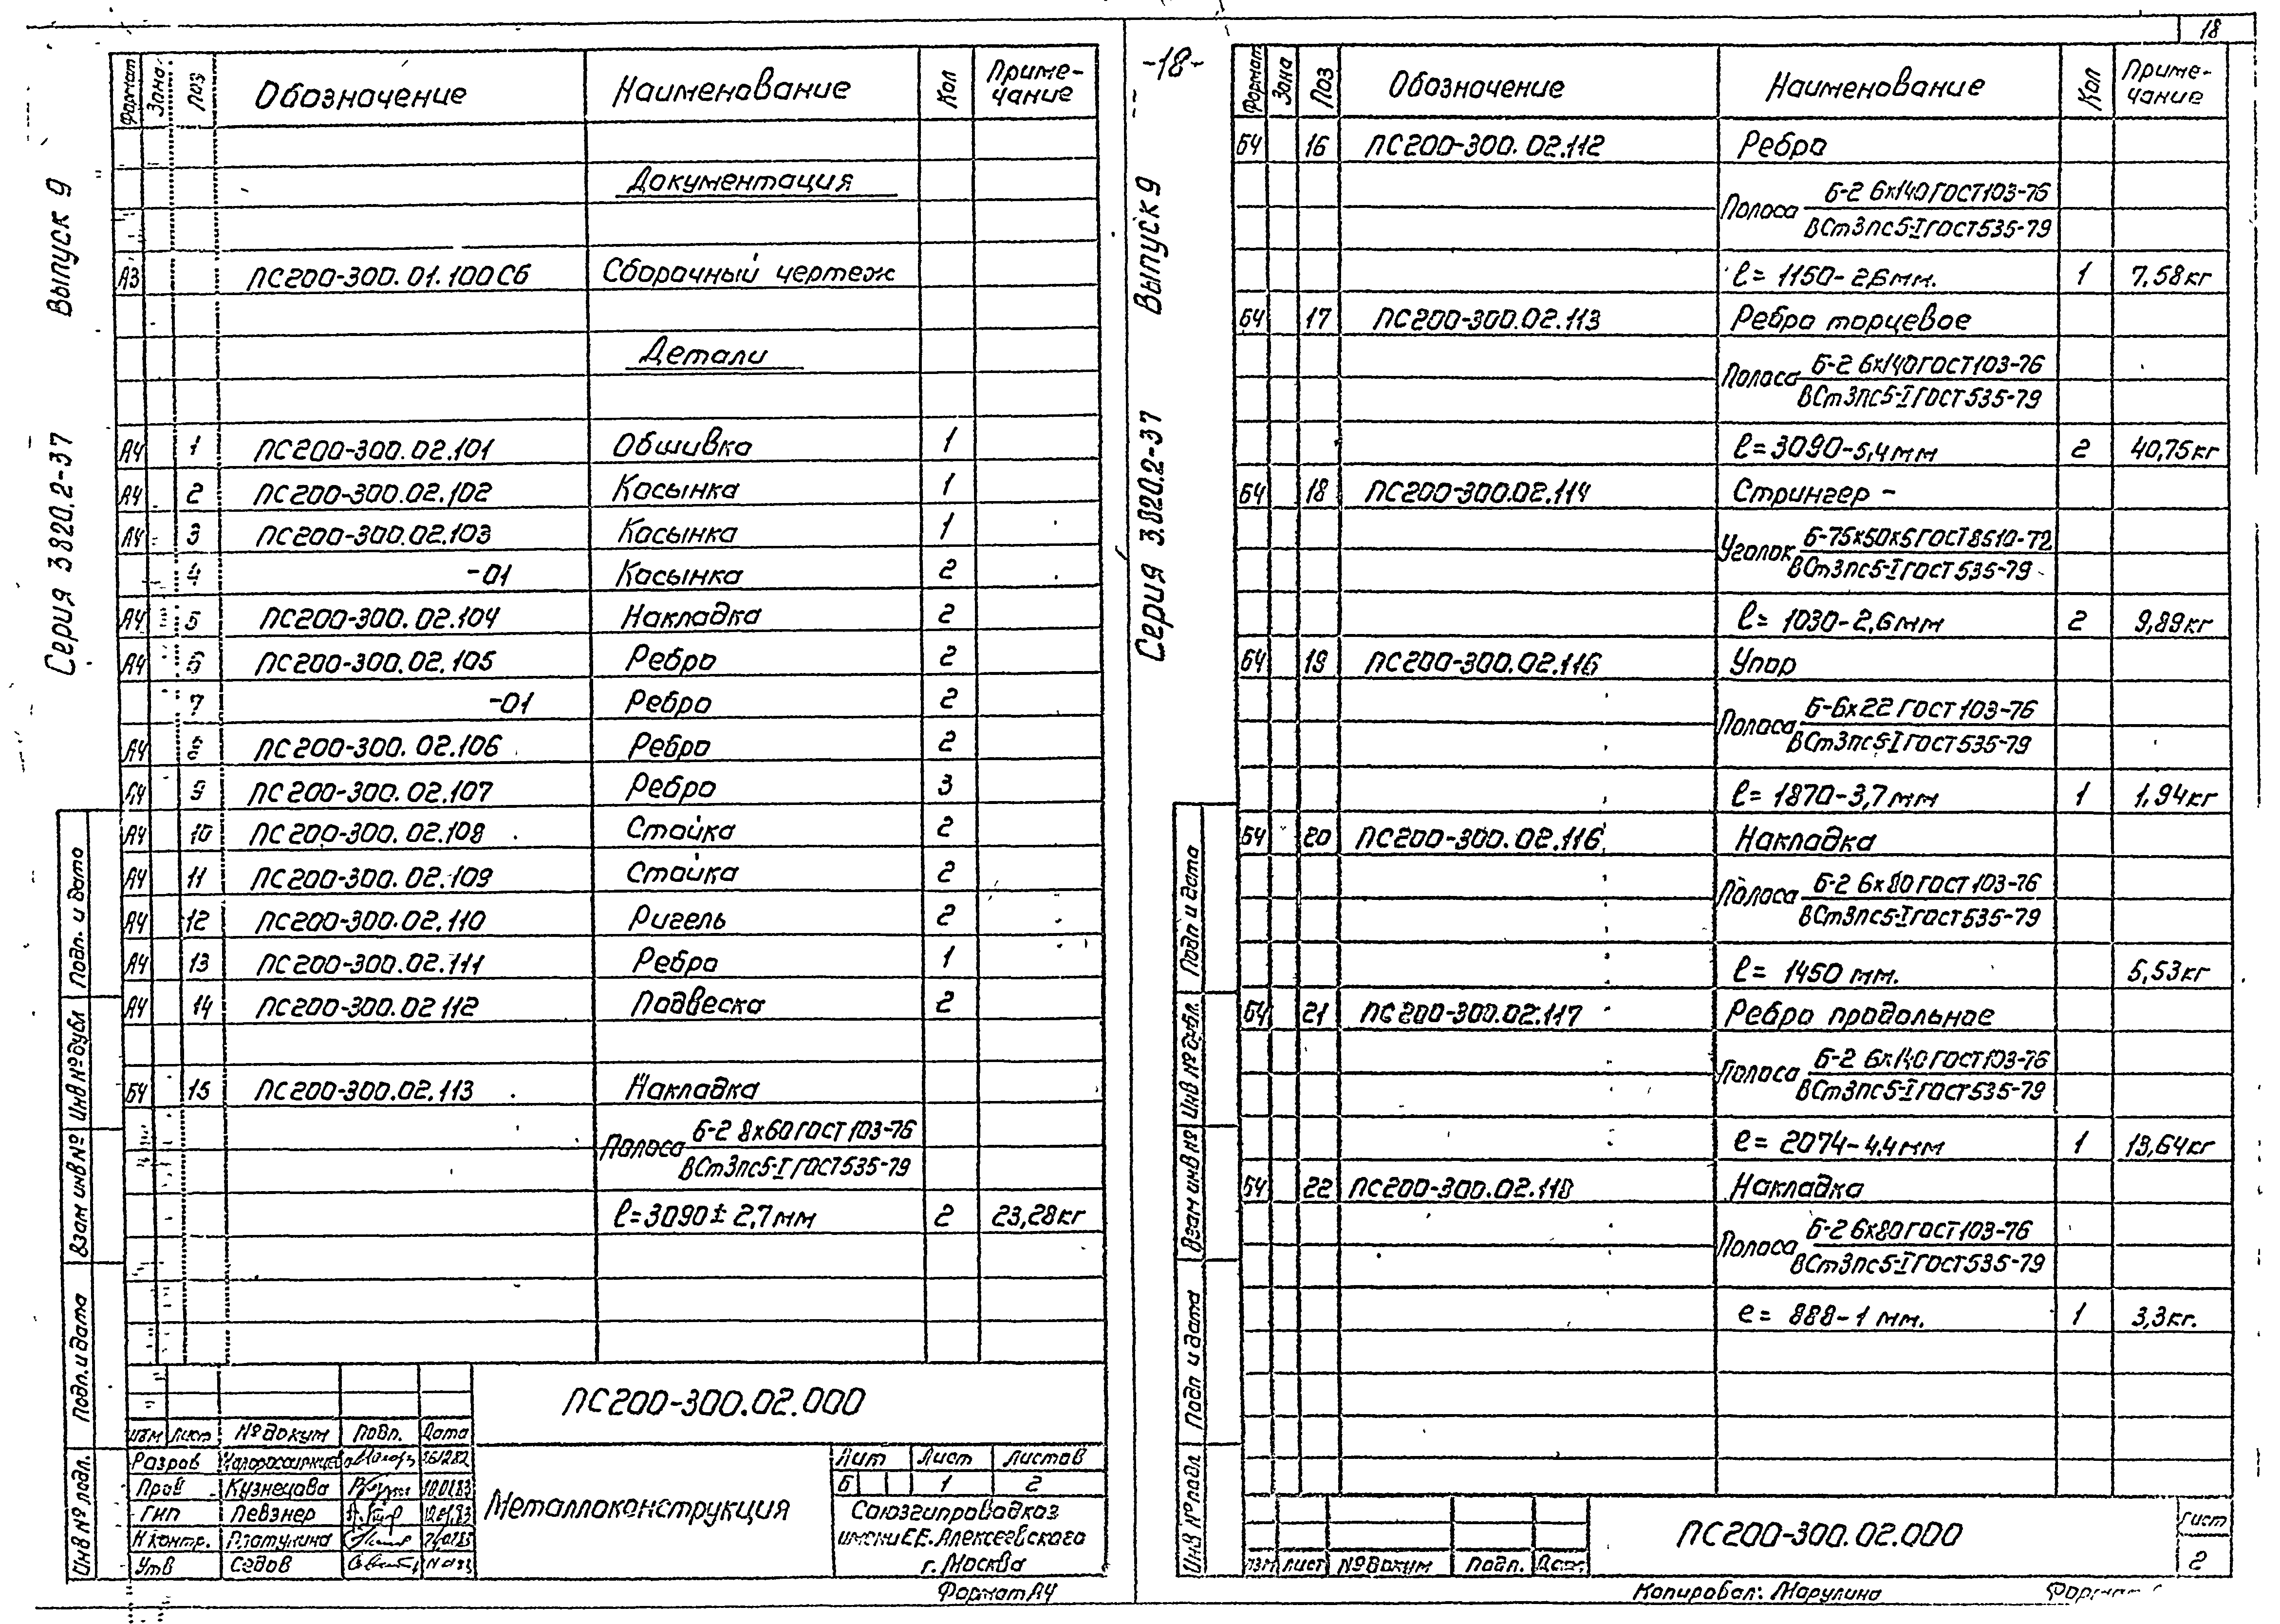 18
Выпуск 9
Серия 3.820.2-37
Формат Зона Поз Обозначение Наименование Кол Приме-
чание
Документация
А3 ПС200-300.01.100СБ Сборочный чертеж
Детали
А4 1 ПС200-300.02.101 Обшивка 1
А4 2 ПС200-300.02.102 Косынка 1
А4 3 ПС200-300.02.103 Косынка 1
4 -01 Косынка 2
А4 5 ПС200-300.02.104 Накладка 2
А4 6 ПС200-300.02.105 Ребро 2
7 -01 Ребро 2
А4 8 ПС200-300.02.106 Ребро 2
А4 9 ПС200-300.02.107 Ребро 3
А4 10 ПС200-300.02.108 Стойка 2
А4 11 ПС200-300.02.109 Стойка 2
А4 12 ПС200-300.02.110 Ригель 2
А4 13 ПС200-300.02.111 Ребро 1
А4 14 ПС200-300.02 112 Подвеска 2
БЧ 15 ПС200-300.02.113 Накладка
Полоса Б-2 8х60 ГОСТ 103-76
ВСт3пс5-I ГОСТ 535-79
ℓ=3090± 2,7мм 2 23,28кг
ПС200-300.02.000
Изм Лист №докум Подп. Дата
Разраб
Пров Кузнецова
ГИП Певзнер
Н контр. Платунина
Утв Седов
Металлоконструкция
Лит Лист Листов
Б 1 2
Союзгипроводхоз
имени Е.Е. Алексеевского
г. Москва
Формат А4
Подп. и дата
Инв № дубл
Взам инв №
Подп. и дата
Инв № подл.
-18-
Выпуск 9
Серия 3.820.2-37
Формат Зона Поз Обозначение Наименование Кол Приме-
чание
БЧ 16 ПС200-300.02.112 Ребро
Полоса Б-2 6х140 ГОСТ 103-76
ВСт3пс5-I ГОСТ 535-79
ℓ= 1150-2,6мм. 1 7,58кг
БЧ 17 ПС200-300.02.113 Ребро торцевое
Полоса Б-2 6х140 ГОСТ 103-76
ВСт3пс5-I ГОСТ 535-79
ℓ=3090-5,4мм 2 40,75кг
БЧ 18 ПС200-300.02.114 Стрингер -
Уголок Б-75х50х5 ГОСТ 8510-72
ВСт3пс5-I ГОСТ 535-79
ℓ= 1030-2,6мм 2 9,89кг
БЧ 19 ПС200-300.02.116 Упор
Полоса Б-6х22 ГОСТ 103-76
ВСт3пс5-I ГОСТ 535-79
ℓ= 1870-3,7мм 1 1,94кг
БЧ 20 ПС200-300.02.116 Накладка
Полоса Б-2 6х80 ГОСТ 103-76
ВСт3пс5-I ГОСТ 535-79
ℓ= 1450 мм. 5,53кг
БЧ 21 ПС200-300.02.117 Ребро продольное
Полоса Б-2 6х140 ГОСТ 103-76
ВСт3пс5-I ГОСТ 535-79
е= 2074-4,4мм 1 13,64кг
БЧ 22 ПС200-300.02.118 Накладка
Полоса Б-2 6х80 ГОСТ 103-76
ВСт3пс5-I ГОСТ 535-79
е= 888-1 мм. 1 3,3кг.
ПС200-300.02.000
Изм Лист №докум Подп. Дата
Лист
2
Подп и дата
Инв № дубл.
Взам инв №
Подп и дата
Инв № подл
Копировал: Марулина